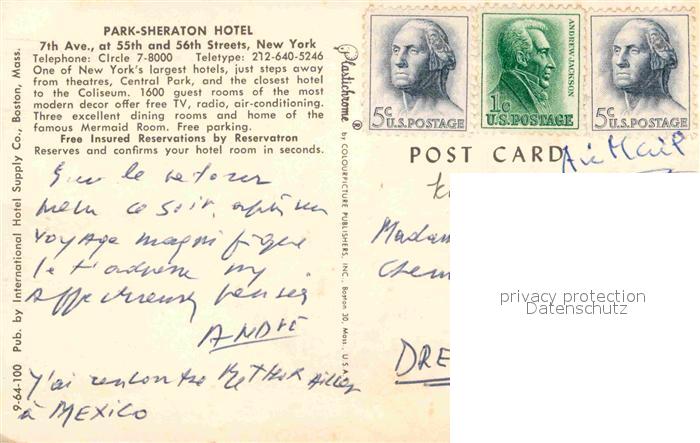 PARK-SHERATON HOTEL
7th Ave., at 55th and 56th Streets, New York
Telephone: CIrcle 7-8000 Teletype: 212-640-5246
One of New York's largest hotels, just steps away
from theatres, Central Park, and the closest hotel
to the Coliseum. 1600 guest rooms of the most
modern decor offer free TV, radio, air-conditioning.
Three excellent dining rooms and home of the
famous Mermaid Room. Free parking.
Free Insured Reservations by Reservatron
Reserves and confirms your hotel room in seconds.
le retour
ce soir, après un
voyage magnifique
Je t'adresse
affectueuses pensées
ANDRÉ
J'ai rencontré
à MEXICO
9-64-100 Pub. by International Hotel Supply Co., Boston, Mass.
Plastichrome ® by COLOURPICTURE PUBLISHERS, INC., Boston 30, Mass., U.S.A.
5c
U.S. POSTAGE
ANDREW JACKSON
1c
U.S. POSTAGE
5c
U.S. POSTAGE
POST CARD
Air Mail
Madam
DRE
privacy protection
Datenschutz